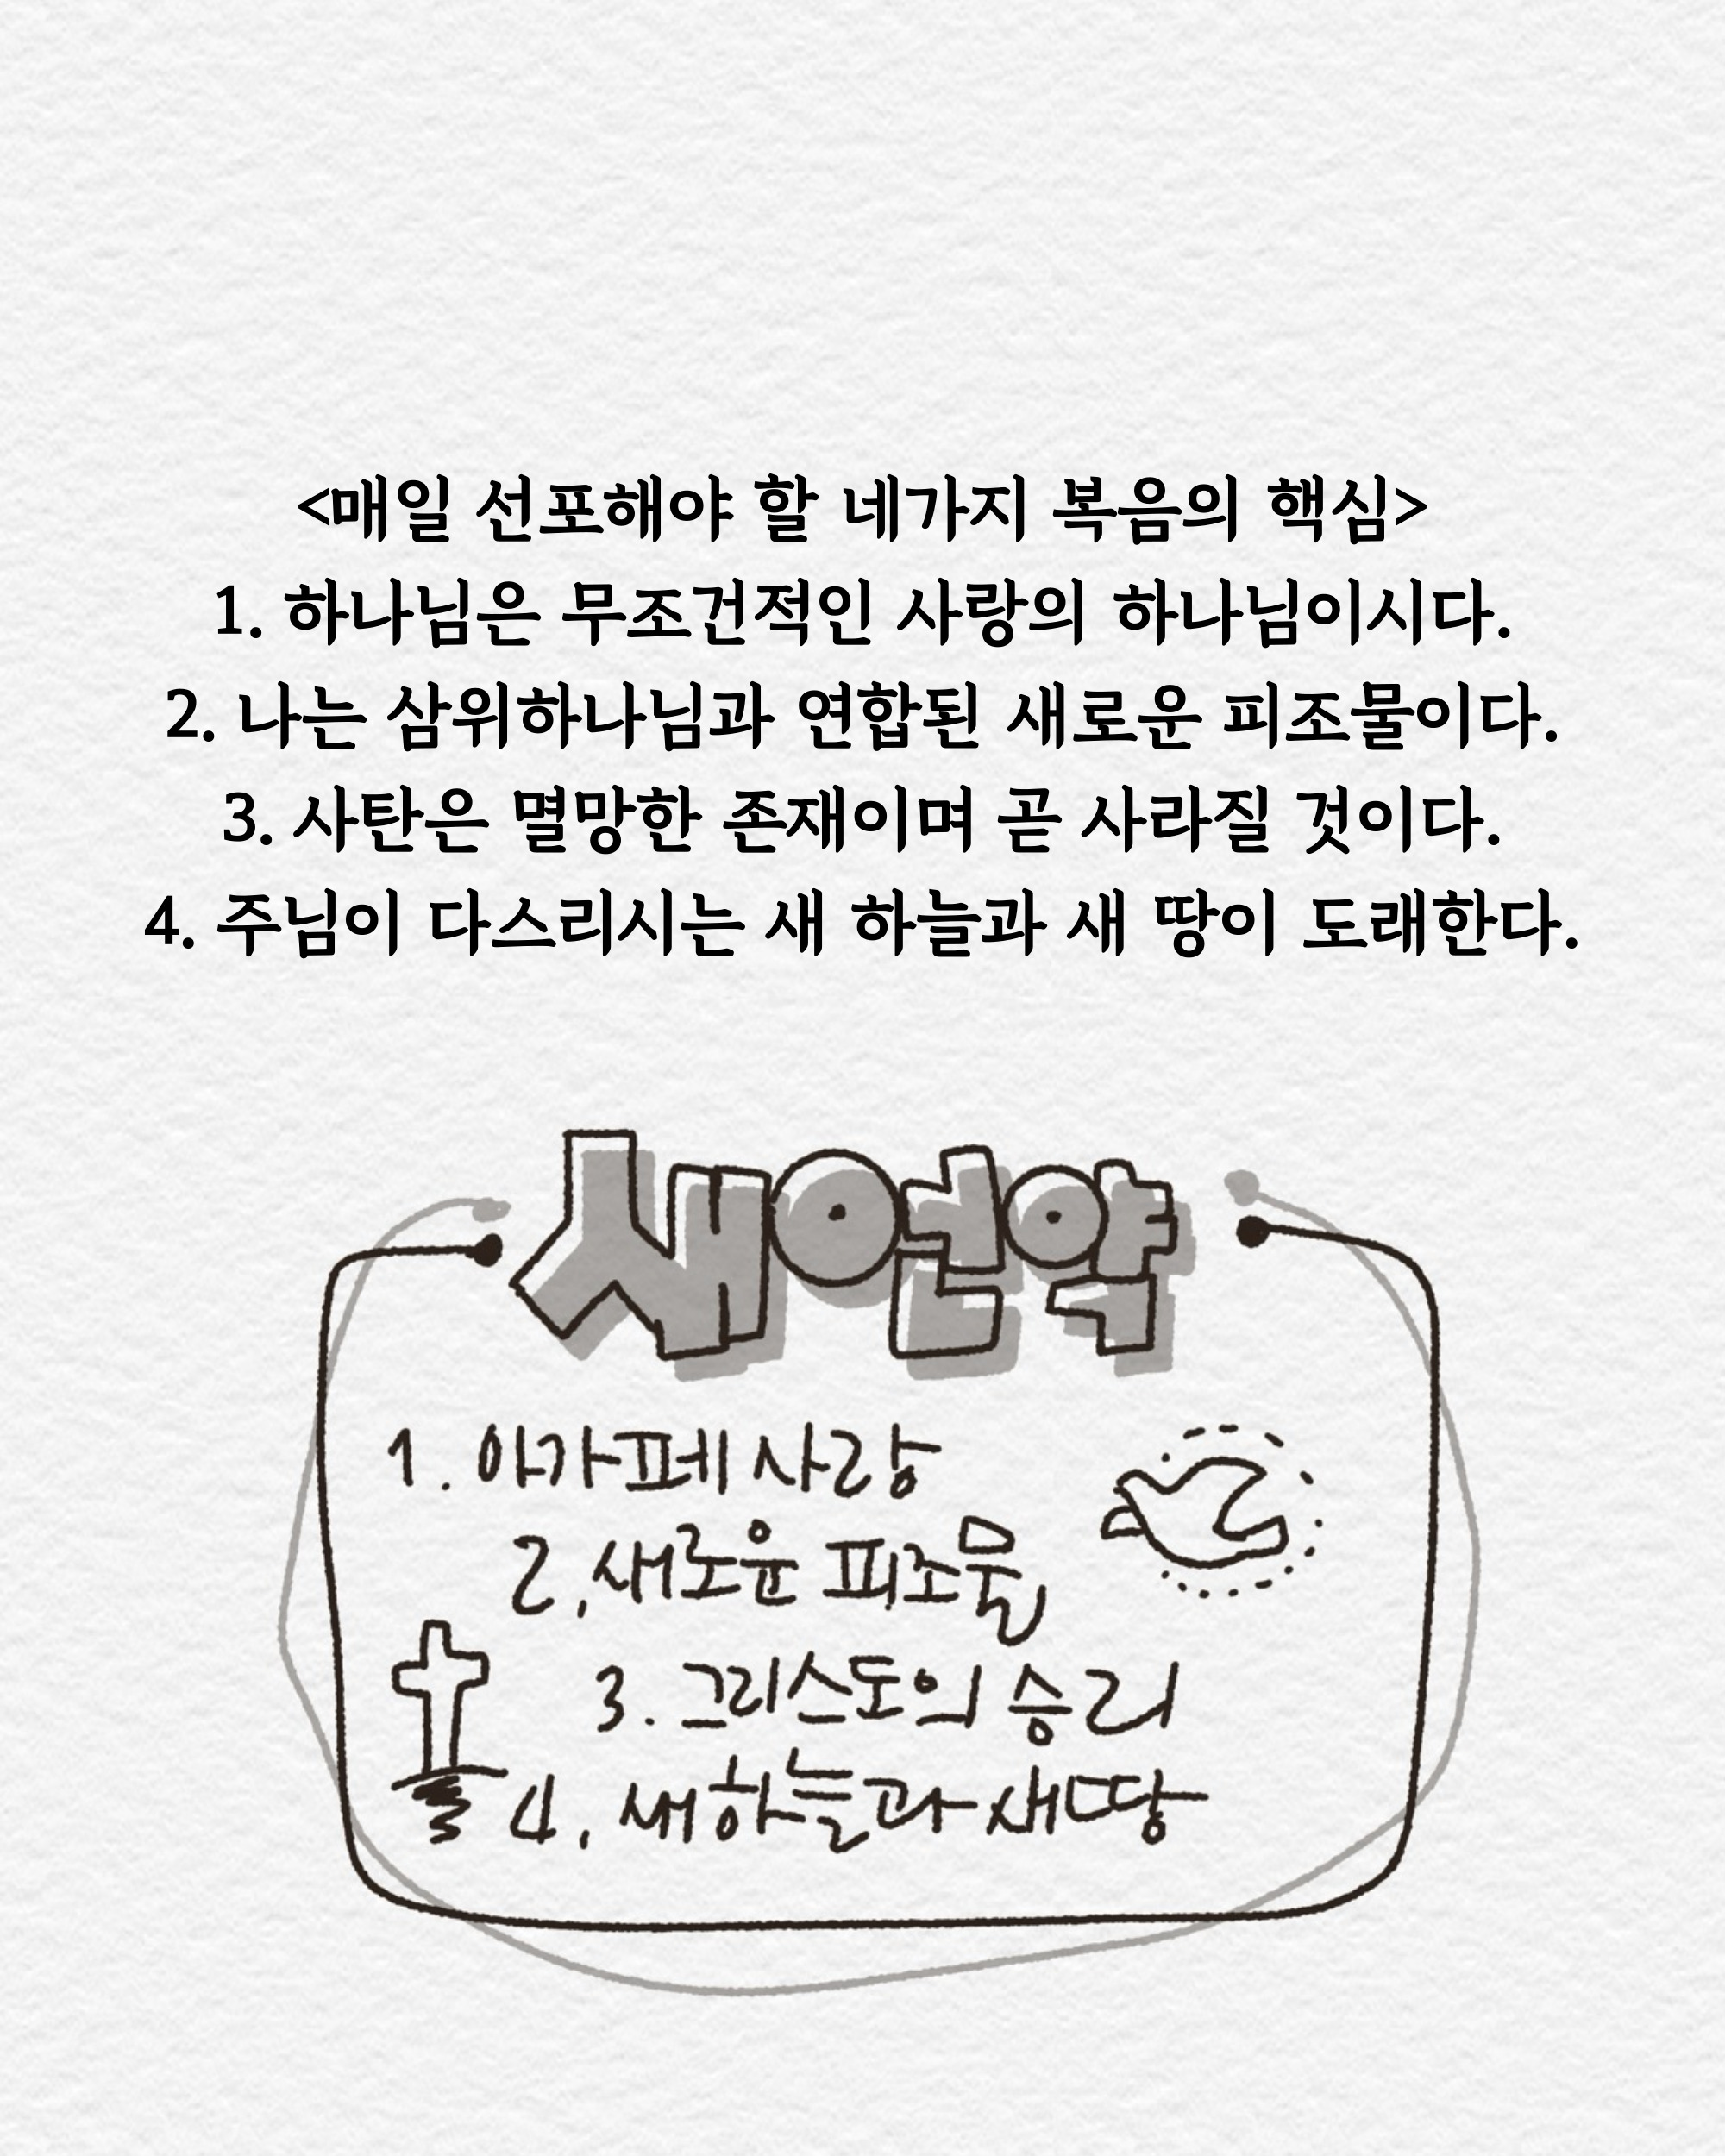 <매일 선포해야 할 네가지 복음의 핵심>
1. 하나님은 무조건적인 사랑의 하나님이시다.
2. 나는 삼위하나님과 연합된 새로운 피조물이다.
3. 사탄은 멸망한 존재이며 곧 사라질 것이다.
4. 주님이 다스리시는 새 하늘과 새 땅이 도래한다.
새언약
1. 아가페 사랑
2. 새로운 피조물
3. 그리스도의 승리
4. 새하늘과 새땅